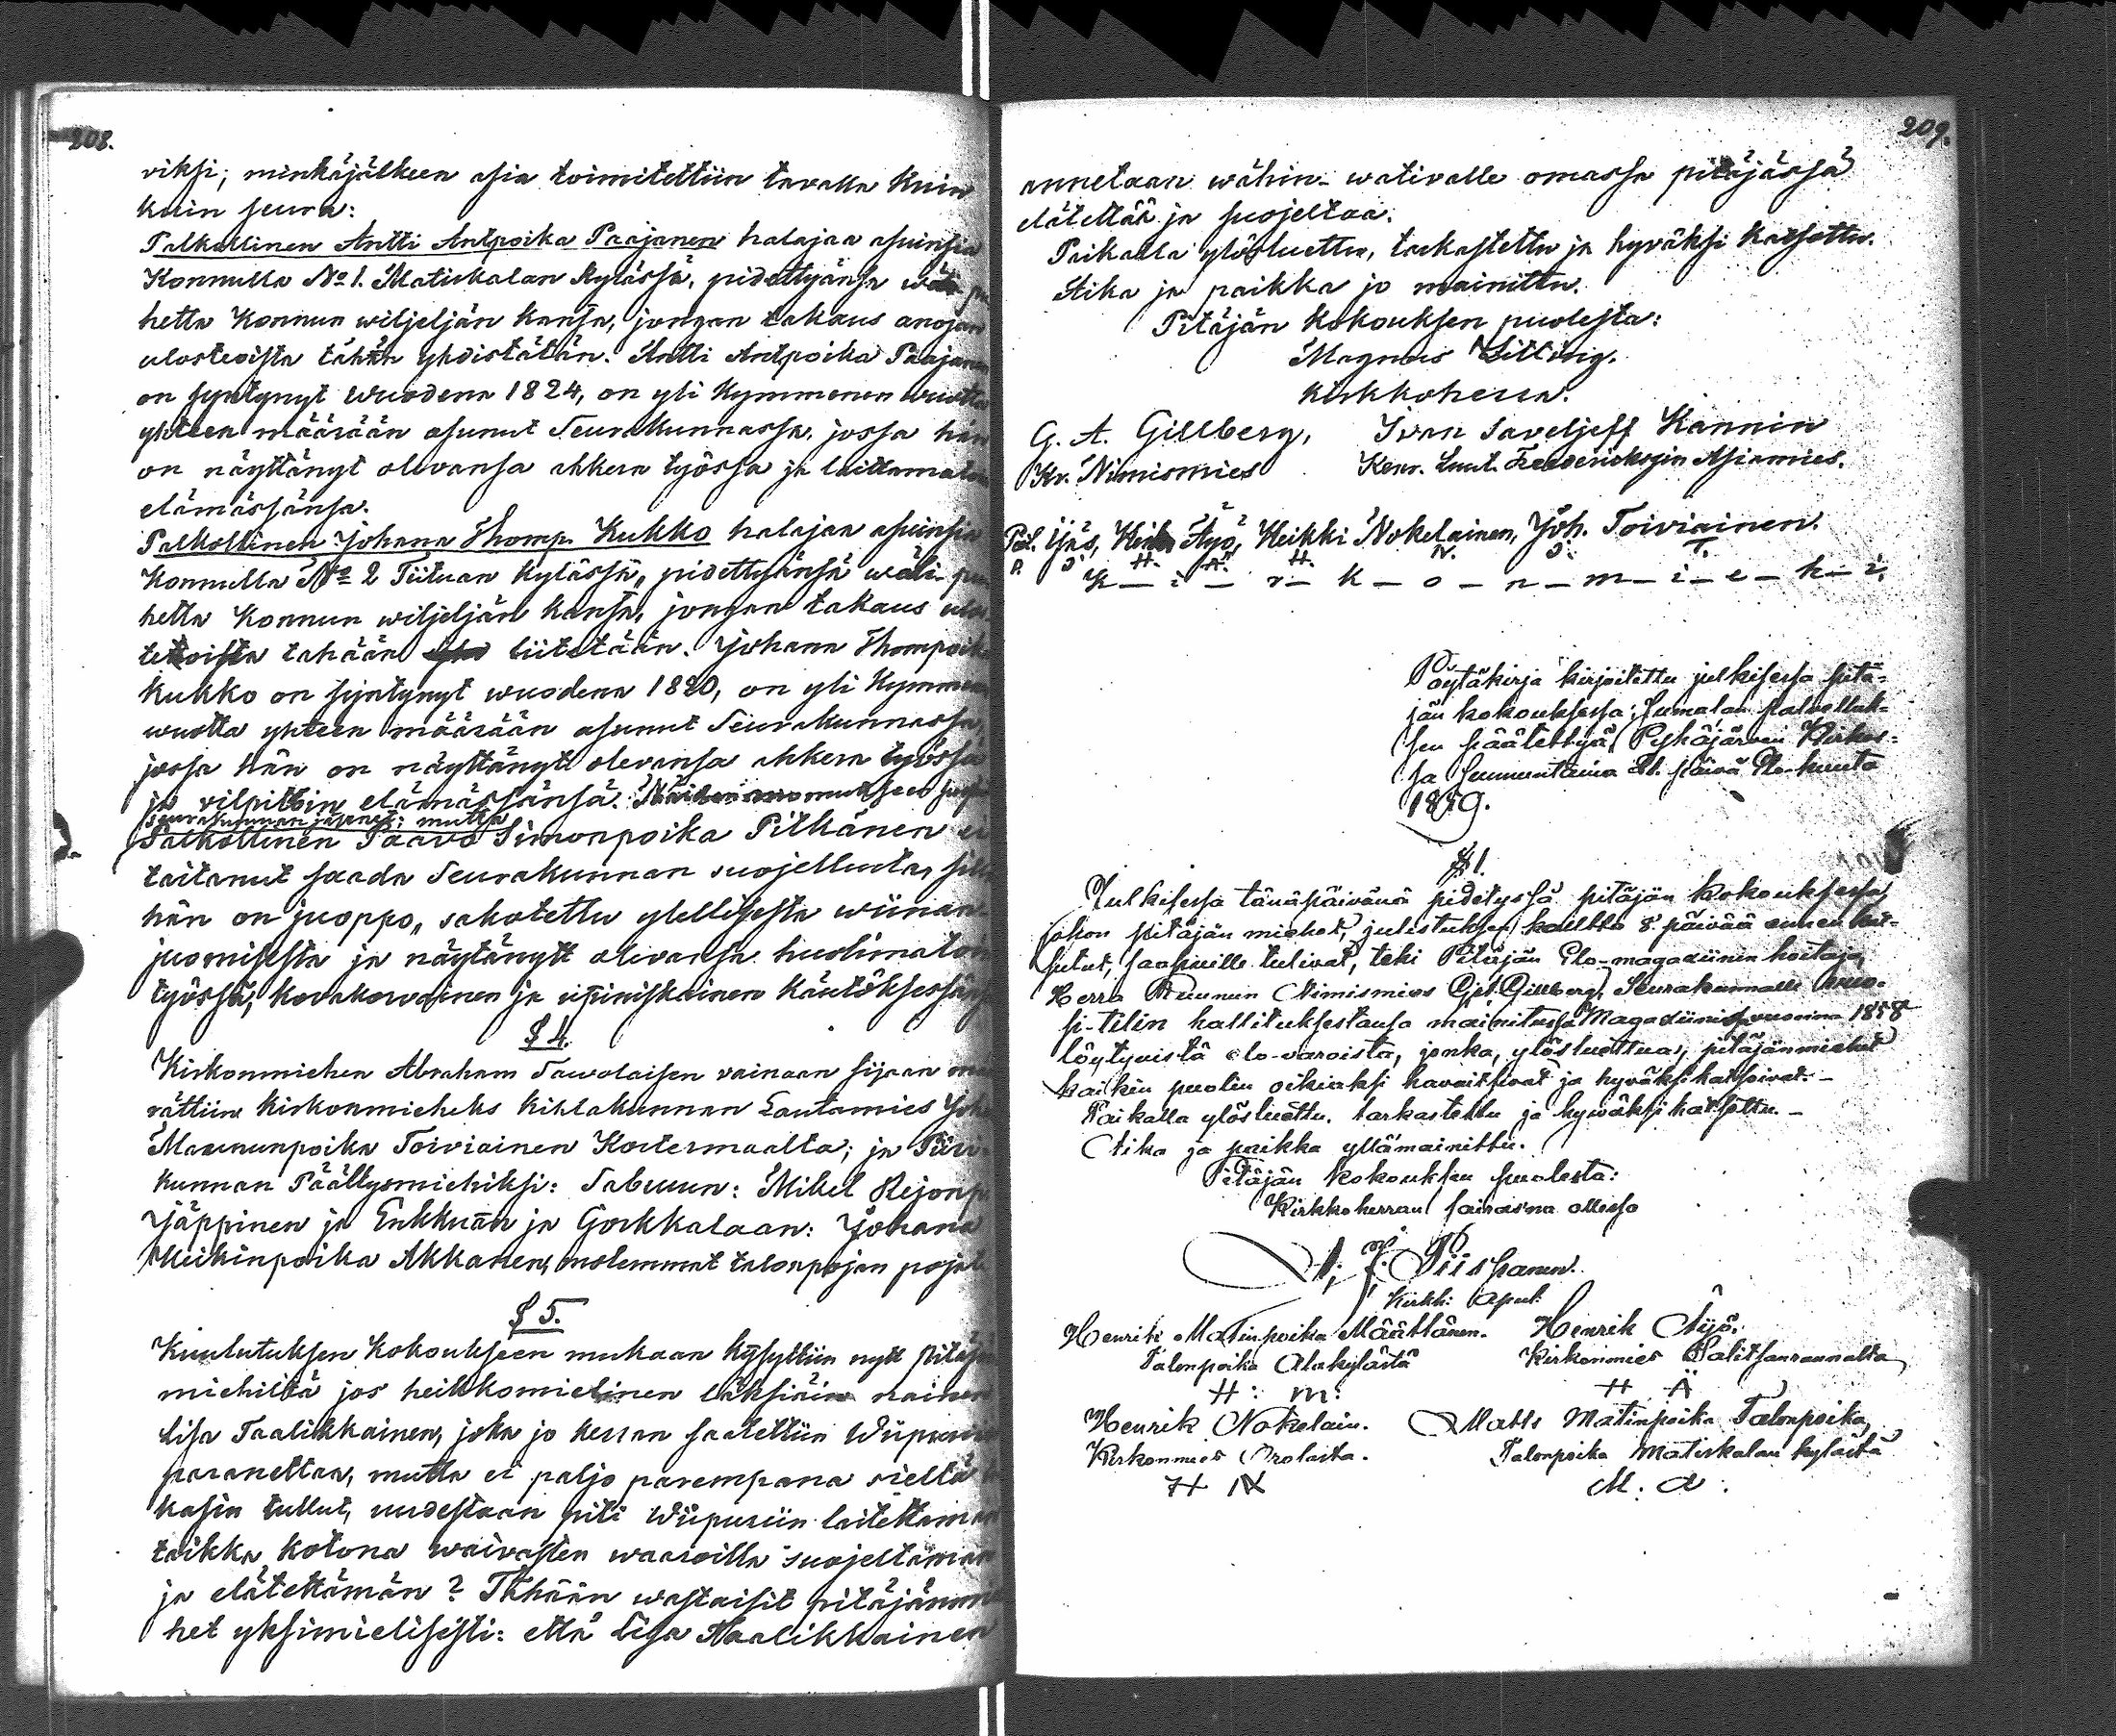 208.
viksi; minkäjälkeen asia toimitettiin tavalla kuin
kuin seura:
Palkollinen Antti Antpoika Paajanen halajaa asuinsia
Konnulla No 1. Matiskalan kylässä, pidettyänsä wäli-pu
hetta Konnun wiljeljän kansa, jongan takaus anojan
ulosteoista tähän yhdistätän. Antti Antpoika Paajanen
on syntynyt wuodena 1824, on yli kymmenen wuotta
yhteen määrään asunut Seurakunnassa, jossa hän
on näyttänyt olevansa ahkera työssä ja laittamatoin
elämässänsä.
Palkollinen Johana Thomp. Kukko halajaa asuinsia
Konnulla No 2 Tiituan kylässä, pidettyänsä wäli-pu
hetta Konnun wiljeljän kansa, jongan takaus ulos-
teoista tahään liitetään. Johana Thompoika
Kukko on syntynyt wuodena 1820, on yli kymmenen
wuotta yhteen määrään asunut Seurakunnassa,
jossa hän on näyttänyt olevansa ahkera työssä
ja vilpitöin elämässänsä.
seurakunnan jäsenet; mutta
Palkollinen Paavo Simonpoika Pitkänen ei
taitanut saada Seurakunnan suojellusta, sillä
hän on juoppo, sakotettu ylellisestä wiinan-
juomisesta ja näytänytt olivansa huolimatoin
työssä, kovakorvainen ja ilpiniskainen käutöksessänsä
§ 4.
Kirkonmiehen Abraham Tawolaisen vainaan sijaan
rättiin kirkonmieheks Kihlakunnan Lautamies Joh
Maununpoika Toiviainen Kostermaalta; ja Piiri-
kunnan Päällysmiehiksi: Sabuun: Mikel Rejonp.
Jäppinen ja Enkkuan ja Gorkkalaan: Johana
Heikinpoika Akkanen, molemmat talonpojan pojat.
§ 5.
Kuulutuksen Kokoukseen mukaan kysyttiin nytt pitäjän
miehiltä jos heikkomielinen läksiäin nainen
Lisa Taalikkainen, joka jo kerran saatettiin Wiipuriin
paranettaa, mutta ei paljo parempana sieltä
kasin tullut, uudestaan piti Wiipuriin laitettaman
taikka kotona waivasten waaroilla suojeltaman
ja elätettämän? Tähään wastaisit pitäjänmie
het yksimielisesti: että Lisa Naalikkainen
209.
annetaan wähin-wativalle omassa pitäjässä
elätettää ja suojeltaa.
Paikalla ylösluettu, tarkastettu ja hyväksi katsottu.
Aika ja paikka jo mainittu.
Pitäjän Kokouksen puolesta:
Magnus Sitting.
Kirkkoherra.
G. A. Gillberg, Ivan Saveljeff Kannin
Kr. Nimismies Kenr. Luut. Frederiksyin Asiamies.
Pål. Ijäs, Heik Äyö, Heikki Nokelainen, Joh. Toiviainen.
P. J. H. Ä. H. N. J. T.
K – i – r – k – o – n – m – i – e – h – i.
Pöytäkirja kirjoitettu julkisessa pitä-
jän kokouksessa; Jumalan palvelluk-
sen päätettyä Pyhäjärven Kirkos-
sa Sunnuntaina 21. päivä Elo-kuuta
1859.
§ 1.
Julkisessa tänäpäivänä pidetyssä pitäjän kokouksessa,
johon pitäjän miehet, julistuksen kautta 8 päivää ennen kut-
sutut, saapuille tulivat, teki Pitäjän Elo-magasiinin hoitaja,
Herra Kruunun Nimismies Gillberg, Seurakunnalle wuo-
si-tilin hallituksestansa mainitussa Magasiinissa vuonna 1858
löytyvistä elo-varoista, jonka, ylösluettua, pitäjänmiehet
kaikin puolin oikiaksi havaitsivat ja hyväksi katsoivat.–
Paikalla ylösluettu, tarkastettu ja hywäksi katsottu.–
Aika ja paikka yllämainittu.
Pitäjän kokouksen puolesta:
Kirkkoherran sairasna ollessa
A. F. Piispanen.
Kirkh: Apul:
Henrik Matinpoika Määttänen. Henrik Äijö.
Talonpoika Alakylästä Kirkonmies Salitsanrannalta
H: M: H Ä
Henrik Nokelain. Matts Matinpoika Talonpoika,
Kirkonmies Orolasta. Talonpoika Matiskalan kylästä
H N M. A.